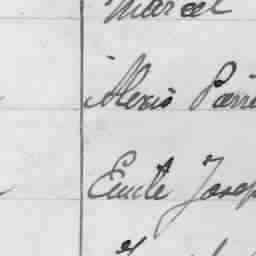 Marcel
Alexis Pierre
Emile Josep